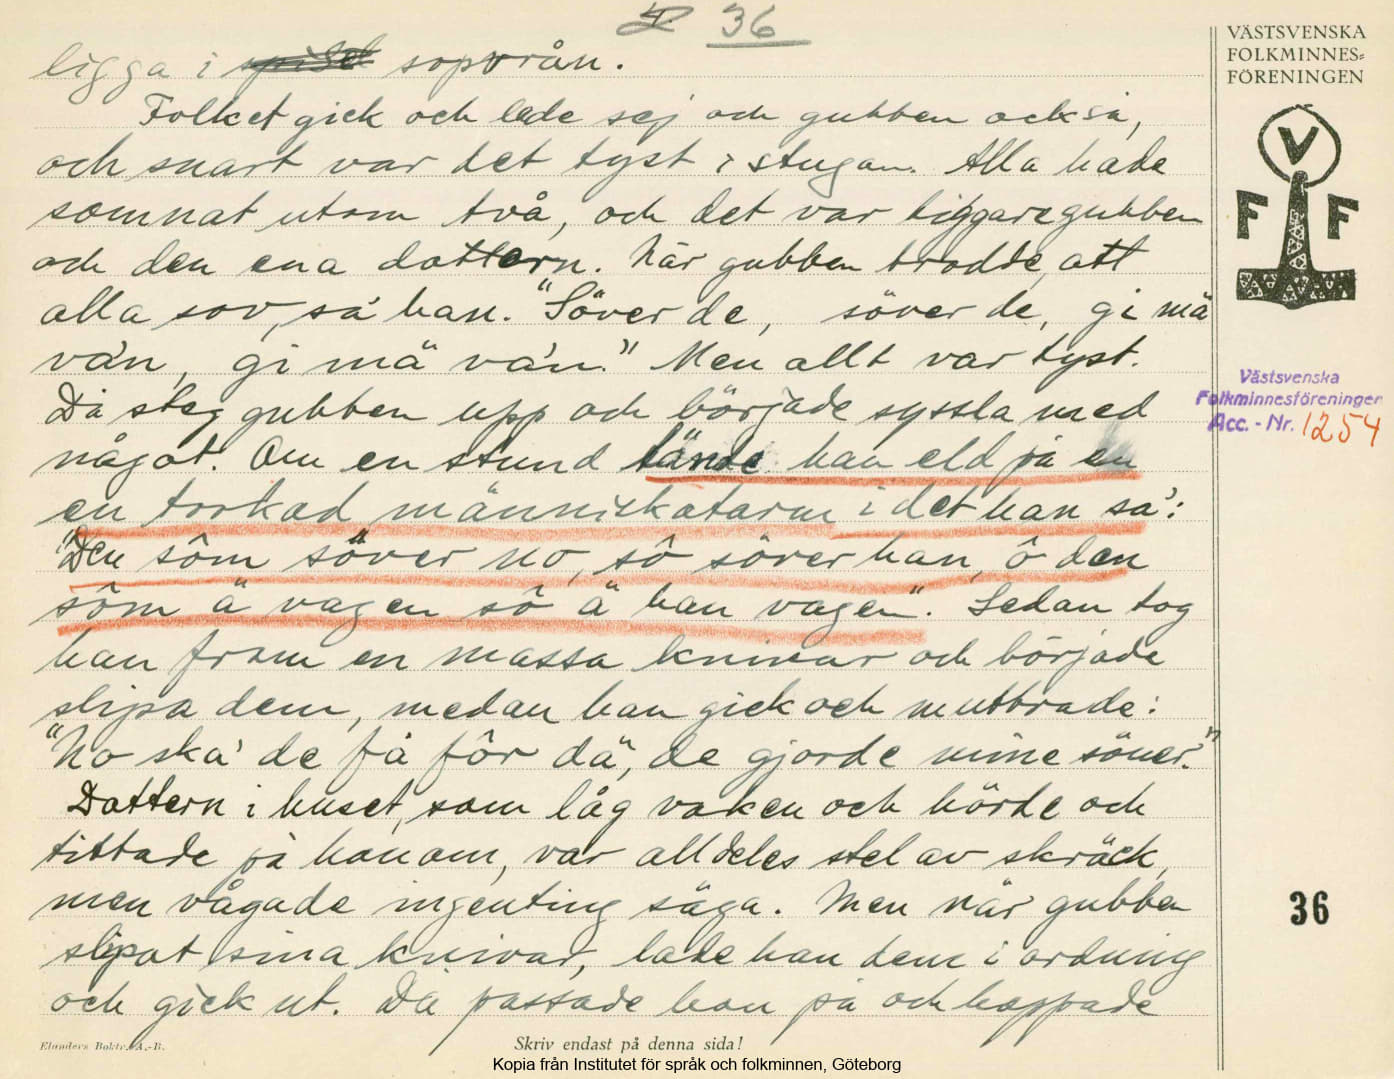 36
ligga i sopvrån.
Folket gick och lade sej och gubben också,
och snart var det tyst i stugan. Alla hade
somnat utom två, och det var tiggaregubben
och den ena dottern. När gubben trodde, att
alla sov, sá han. "Söver de, söver de, gi mä
vá'n, gi mä vá'n." Men allt var tyst.
Då steg gubben upp och började syssla med
något. Om en stund tände han eld på en
en torkad människotarm i det han sa':
"Den sôm söver no, sô söver han, ô den
sôm ä vagen sô ä han vagen". Sedan tog
han fram en massa knivar och började
slipa dem, medan han gick och muttrade:
"No ska' de få fôr dä, de gjorde mine söner."
Dottern i huset, som låg vaken och hörde och
tittade på honom, var alldeles stel av skräck,
men vågade ingenting säga. Men när gubben
slipat sina knivar, lade han dem i ordning
och gick ut. Då passade hon på och hoppade
Elanders Boktr. A.-B.
Skriv endast på denna sida!
Kopia från Institutet för språk och folkminnen, Göteborg
VÄSTSVENSKA
FOLKMINNES-
FÖRENINGEN
V
F F
Västsvenska
Folkminnesföreningen
Acc. - Nr. 1254
36